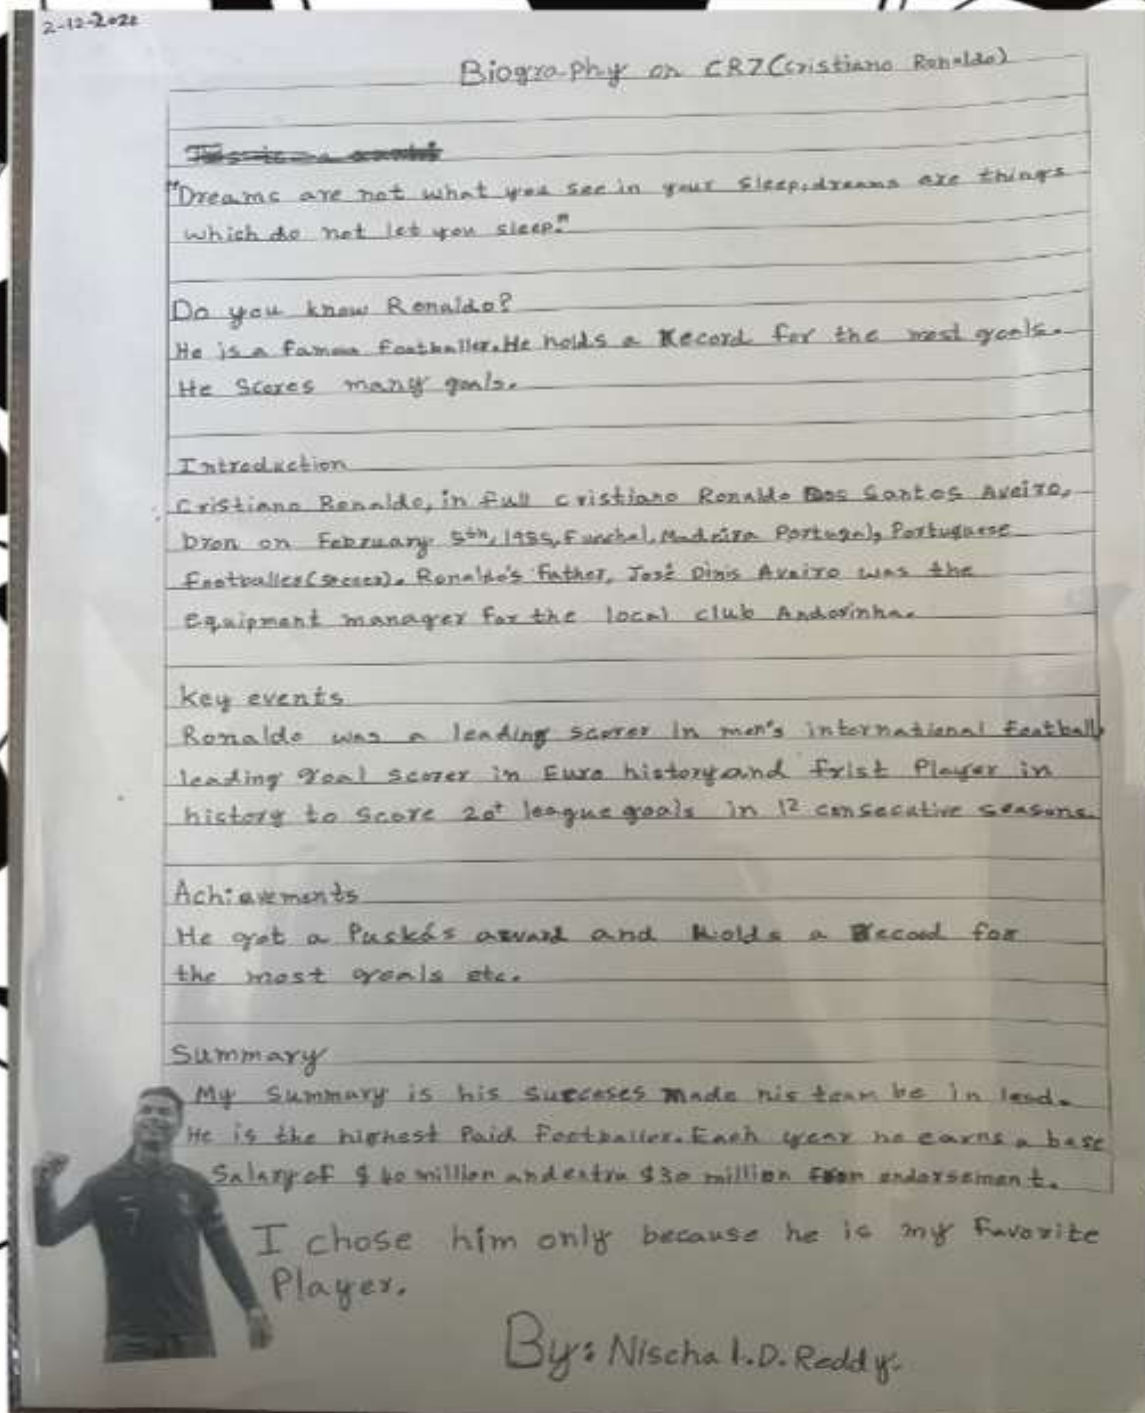 2-12-2022
Biography on CR7(Cristiano Ronaldo)
"Dreams are not what you see in your sleep,dreams are things
which do not let you sleep."
Do you know Ronaldo?
He is a famous footballer.He holds a Record for the most goals.
He scores many goals.
Introduction
Cristiano Ronaldo, in full cristiano Ronaldo Dos Santos Aveiro,
bron on February 5th, 1985, Funchal, Madeira Portugal, Portuguese
footballer(soccer). Ronaldo's father, José Dinis Aveiro was the
equipment manager for the local club Andorinha.
Key events
Ronaldo was a leading scorer in men's international football
leading goal scorer in Euro history and frist Player in
history to score 20+ league goals in 12 consecutive seasons.
Achievements
He got a Puskás award and Holds a Record for
the most goals etc.
Summary
My summary is his succeses made his team be in lead.
He is the highest Paid footballer. Each year he earns a base
Salary of $ million and extra $30 million from endorsement.
I chose him only because he is my favorite
Player.
By: Nischal.D.Reddy.
7